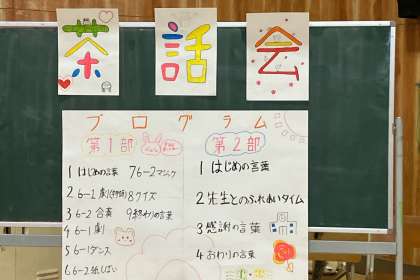 茶話会
プログラム
第1部
1 はじめの言葉
2 6-1 劇
3 6-2 合奏
4 6-1 劇
5 6-1 ダンス
6 6-2 紙しばい
7 6-2 マジック
8 クイズ
9 終わりの言葉
第2部
1 はじめの言葉
2 先生とのふれあいタイム
3 感謝の言葉
4 おわりの言葉